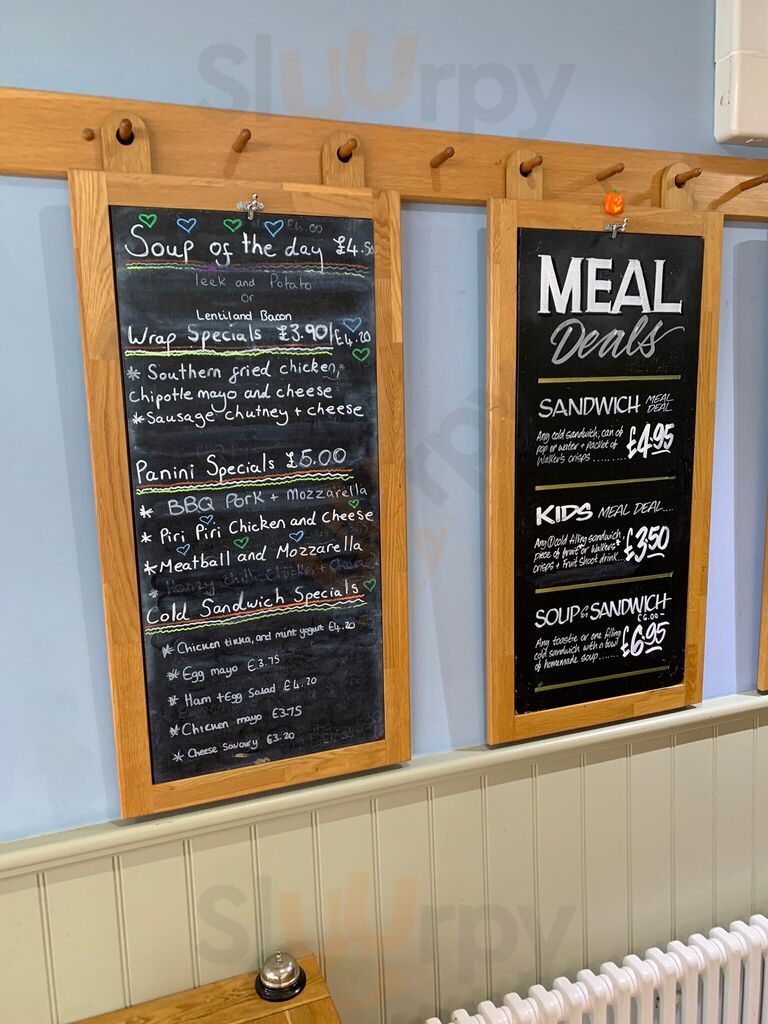 SluUrpy
£4.00
Soup of the day £4.50
leek and Potato
or
Lentil and Bacon
Wrap Specials £3.90/£4.20
* Southern fried chicken,
chipotle mayo and cheese
* Sausage chutney + cheese
Panini Specials £5.00
* BBQ Pork + Mozzarella
* Piri Piri Chicken and Cheese
* Meatball and Mozzarella
* Honey Chilli Chicken + Cheese
Cold Sandwich Specials
* Chicken tikka, and mint yogurt £4.20
* Egg mayo £3.75
* Ham + Egg Salad £4.20
* Chicken mayo £3.75
* Cheese Savoury £3.20
MEAL
Deals
SANDWICH MEAL DEAL
Any cold sandwich, can of
pop or water + packet of
Walker's crisps ........ £4.95
KIDS MEAL DEAL....
Any ① cold filling sandwich
piece of fruit or Walkers
crisps + Fruit Shoot drink... £3.50
SOUP & SANDWICH
£6.00
Any toastie or one filling
cold sandwich with a bowl
of homemade soup ....... £6.95
SluUrpy